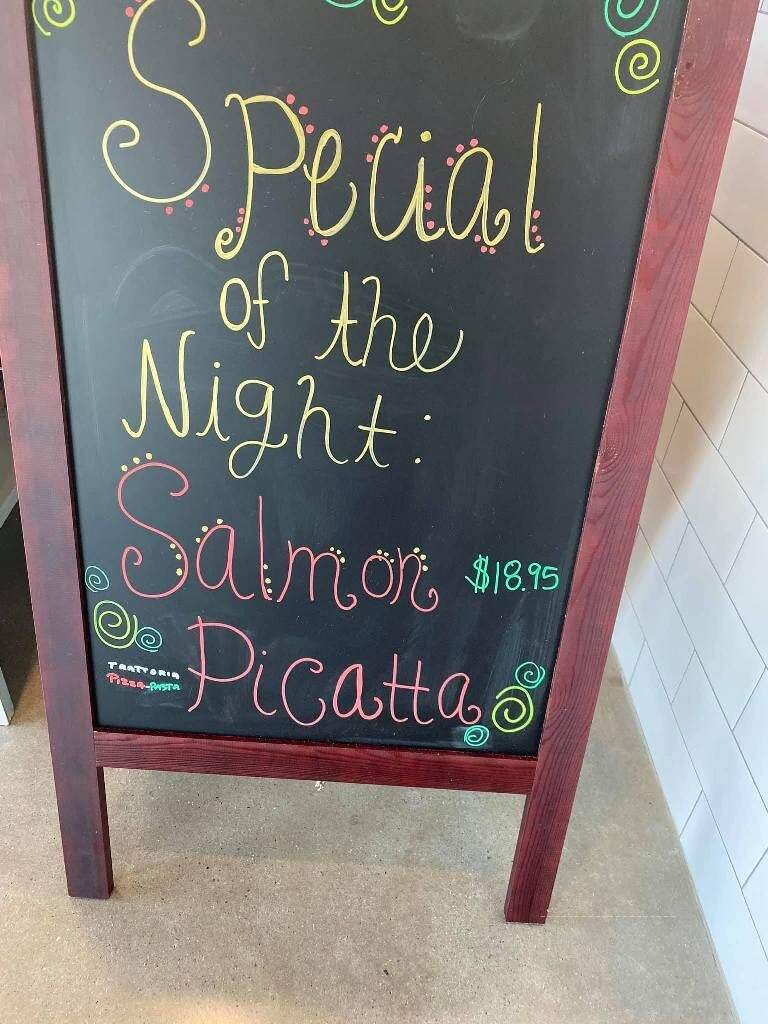 Special
of the
Night:
Salmon $18.95
Picatta
TRATTORIA
PIZZA-PASTA